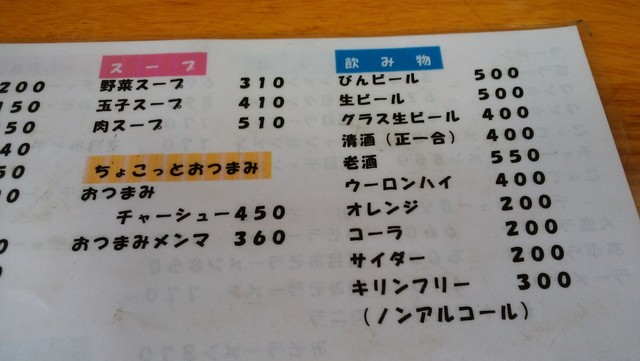 スープ
野菜スープ 310
玉子スープ 410
肉スープ 510
ちょこっとおつまみ
おつまみ
チャーシュー450
おつまみメンマ 360
飲み物
びんビール 500
生ビール 500
グラス生ビール 400
清酒（正一合） 400
老酒 550
ウーロンハイ 400
オレンジ 200
コーラ 200
サイダー 200
キリンフリー 300
（ノンアルコール）